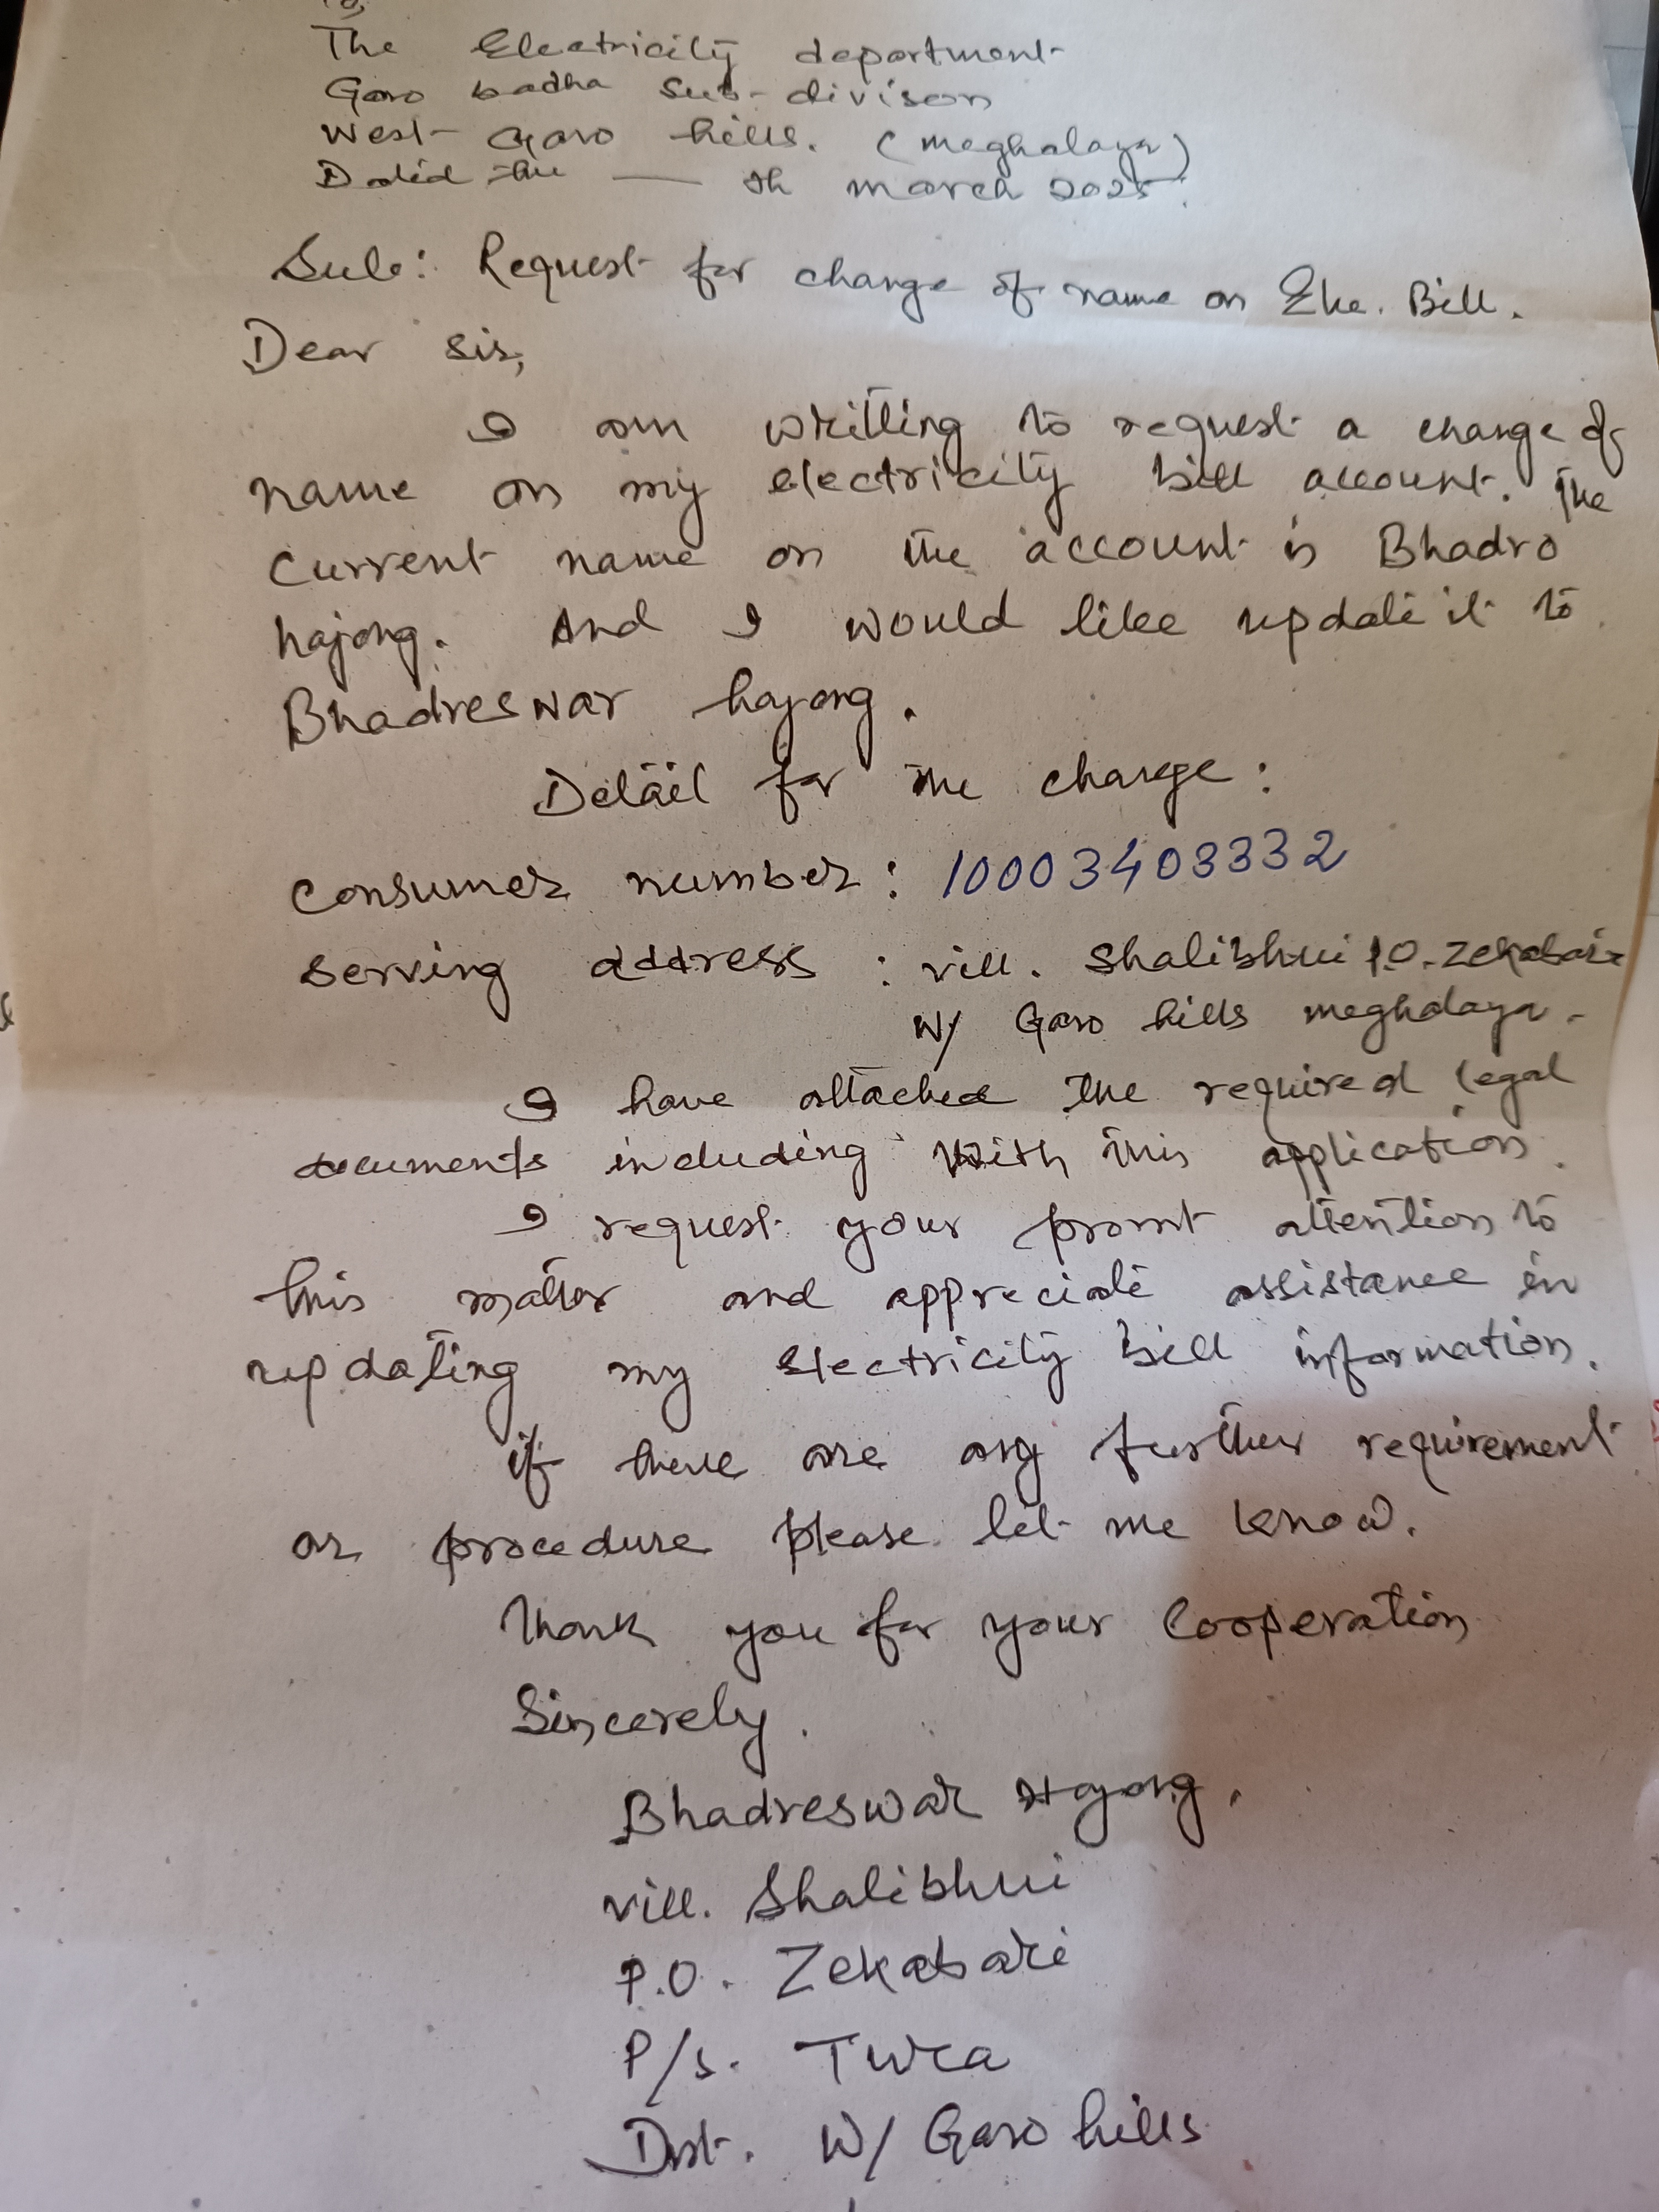 To,
The Electricity department
Garo badha Sub-divison
West Garo hills. (meghalaya)
Dated the — th march 2025.
Sub: Request for change of name on Ele. Bill.
Dear Sir,
I am writting to request a change of
name on my electricity bill account. The
current name on the account is Bhadro
hajong. And I would like update it to
Bhadreswar hajong.
Detail for the change:
Consumer number: 10003403332
Serving address : vill. Shalibhui P.O. Zekabari
W/ Garo hills meghalaya.
I have attached the required legal
documents including with this application.
I request your promt attention to
this matter and appreciate assistance in
updating my electricity bill information.
if there are any further requirement
or procedure please let me know.
Thank you for your Cooperation
Sincerely.
Bhadreswar Hajong.
vill. Shalibhui
P.O. Zekabari
P/s. Tura
Dist. W/ Garo hills